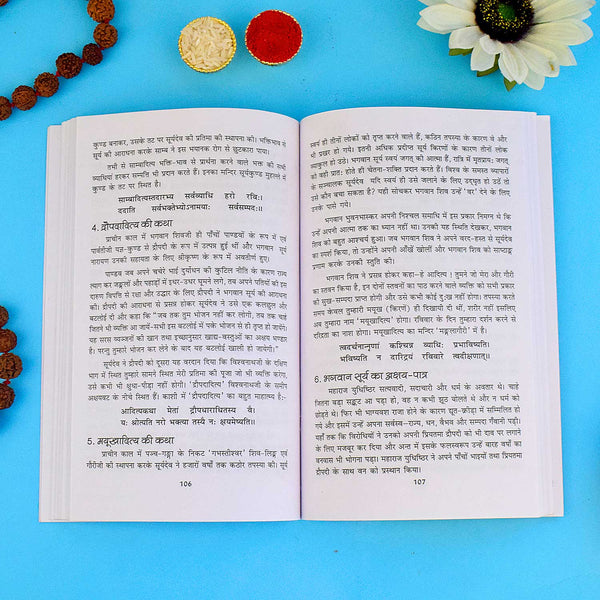 कुण्ड बनाकर, उसके तट पर सूर्यदेव की प्रतिमा की स्थापना की। भक्तिभाव से
सूर्य की आराधना करके साम्ब ने इस भयानक रोग से छुटकारा पाया।
तभी से साम्बादित्य भक्ति-भाव से प्रार्थना करने वाले भक्त को सभी
व्याधियां हरकर सम्पत्ति भी प्रदान करते हैं। इनका मन्दिर सूर्यकुण्ड मुहल्ले में
कुण्ड के तट पर स्थित है।
साम्बादित्यस्तदारभ्य सर्वव्याधि हरो रविः।
ददाति सर्वभक्तेभ्योऽनामयाः सर्वसम्पदः॥
4. द्रौपदादित्य की कथा
प्राचीन काल में भगवान शिवजी ही पाँचों पाण्डवों के रूप में एवं
पार्वतीजी यज्ञ-कुण्ड से द्रौपदी के रूप में उत्पन्न हुई थीं और भगवान सूर्य
नारायण उनकी सहायता के लिए श्रीकृष्ण के रूप में अवतीर्ण हुए।
पाण्डव जब अपने चचेरे भाई दुर्योधन की कुटिल नीति के कारण राज्य
त्याग कर जङ्गलों और पहाड़ों में इधर-उधर घूमने लगे, तब अपने पतियों की इस
दारुण विपत्ति से रक्षा और उद्धार के लिए द्रौपदी ने भगवान सूर्य की आराधना
की। द्रौपदी की आराधना से प्रसन्न होकर सूर्यदेव ने उसे एक कलछुल और
बटलोई दी और कहा कि "जब तक तुम भोजन नहीं कर लोगी, तब तक चाहे
जितने भी व्यक्ति आ जायें-सभी इस बटलोई में पके भोजन से ही तृप्त हो जायेंगे।
यह सरस व्यञ्जनों की खान तथा इच्छानुसार खाद्य-वस्तुओं का अक्षय भण्डार
है। परन्तु तुम्हारे भोजन कर लेने के बाद यह बटलोई खाली हो जायेगी।"
सूर्यदेव ने द्रौपदी को दूसरा यह वरदान दिया कि विश्वनाथजी के दक्षिण
भाग में स्थित तुम्हारे सामने स्थित मेरी प्रतिमा की पूजा जो भी व्यक्ति करेगा,
उसे कभी भी क्षुधा-पीड़ा नहीं होगी। 'द्रौपदादित्य' विश्वनाथजी के समीप
अक्षयवट के नीचे स्थित हैं। काशी में 'द्रौपदादित्य' का बहुत माहात्म्य है:-
आदित्यकथा मेतां द्रौपद्याराधितस्य वै।
यः श्रोत्यति नरो भक्त्या तस्यै नः क्षयमेष्यति॥
5. मयूखादित्य की कथा
प्राचीन काल में पञ्च-गङ्गा के निकट 'गभस्तीश्वर' शिव-लिङ्ग एवं
गौरीजी की स्थापना करके सूर्यदेव ने हजारों वर्षों तक कठोर तपस्या की। सूर्य
106
स्वयं ही तीनों लोकों को तृप्त करने वाले हैं, कठिन तपस्या के कारण वे और
भी प्रखर हो गये। इतनी अधिक प्रदीप्त सूर्य किरणों के कारण तीनों लोक
व्याकुल हो उठे। भगवान सूर्य स्वयं जगत् की आत्मा हैं, रात्रि में मृतप्राय: जगत्
को वही प्रात: होते ही चेतना-शक्ति प्रदान करते हैं। विश्व के समस्त व्यापारों
के सञ्चालक सूर्यदेव यदि स्वयं ही उसे जलाने के लिए उद्धृत हो उठें तो
उसे कौन बचा सकता है? यही सोचकर भगवान शिव उन्हें 'वर' देने के लिए
उनके पास गये।
भगवान भुवनभास्कर अपनी निश्चल समाधि में इस प्रकार निमग्न थे कि
उन्हें अपनी आत्मा तक का ध्यान नहीं था। उनकी यह स्थिति देखकर, भगवान
शिव को बहुत आश्चर्य हुआ। जब भगवान शिव ने अपने वरद-हस्त से सूर्यदेव
का स्पर्श किया, तो उन्होंने अपनी आँखें खोलीं और भगवान शिव को साष्टाङ्ग
प्रणाम करके उनकी स्तुति की।
भगवान शिव ने प्रसन्न होकर कहा-हे आदित्य! तुमने जो मेरा और गौरी
का स्तवन किया है, इन दोनों स्तवनों का पाठ करने वाले व्यक्ति को सभी प्रकार
की सुख-सम्पदा प्राप्त होगी और उसे कभी कोई दु:ख नहीं होगा। तपस्या करते
समय केवल तुम्हारी मयूख (किरणें) ही दिखायी दी थीं, शरीर नहीं इसलिए
अब तुम्हारा नाम 'मयूखादित्य' होगा। रविवार के दिन तुम्हारा दर्शन करने से
दरिद्रता का नाश होगा। मयूखादित्य का मन्दिर 'मङ्गलागौरी' में है।
त्वदर्चनान्नृणां कश्चिन्न व्याधिः प्रभाविष्यति।
भविष्यति न दारिद्र्यं रविवारे त्वदीक्षणात्॥
6. भगवान सूर्य का अक्षय-पात्र
महाराज युधिष्ठिर सत्यवादी, सदाचारी और धर्म के अवतार थे। चाहे
जितना बड़ा सङ्कट आ पड़ा हो, वह न कभी झूठ बोलते थे और न धर्म को
छोड़ते थे। फिर भी भाग्यवश राजा होने के कारण द्यूत-क्रीड़ा में सम्मिलित हो
गये और इसमें उन्हें अपना सर्वस्व-राज्य, धन, वैभव और सम्पदा गँवानी पड़ी।
यहाँ तक कि विरोधियों ने उनको अपनी प्रियतमा द्रौपदी को भी दाव पर लगाने
के लिए मजबूर कर दिया और अन्त में इसके फलस्वरूप उन्हें बारह वर्षों का
वनवास भी भोगना पड़ा। महाराज युधिष्ठिर ने अपने पाँचों भाइयों तथा प्रियतमा
द्रौपदी के साथ वन को प्रस्थान किया।
107